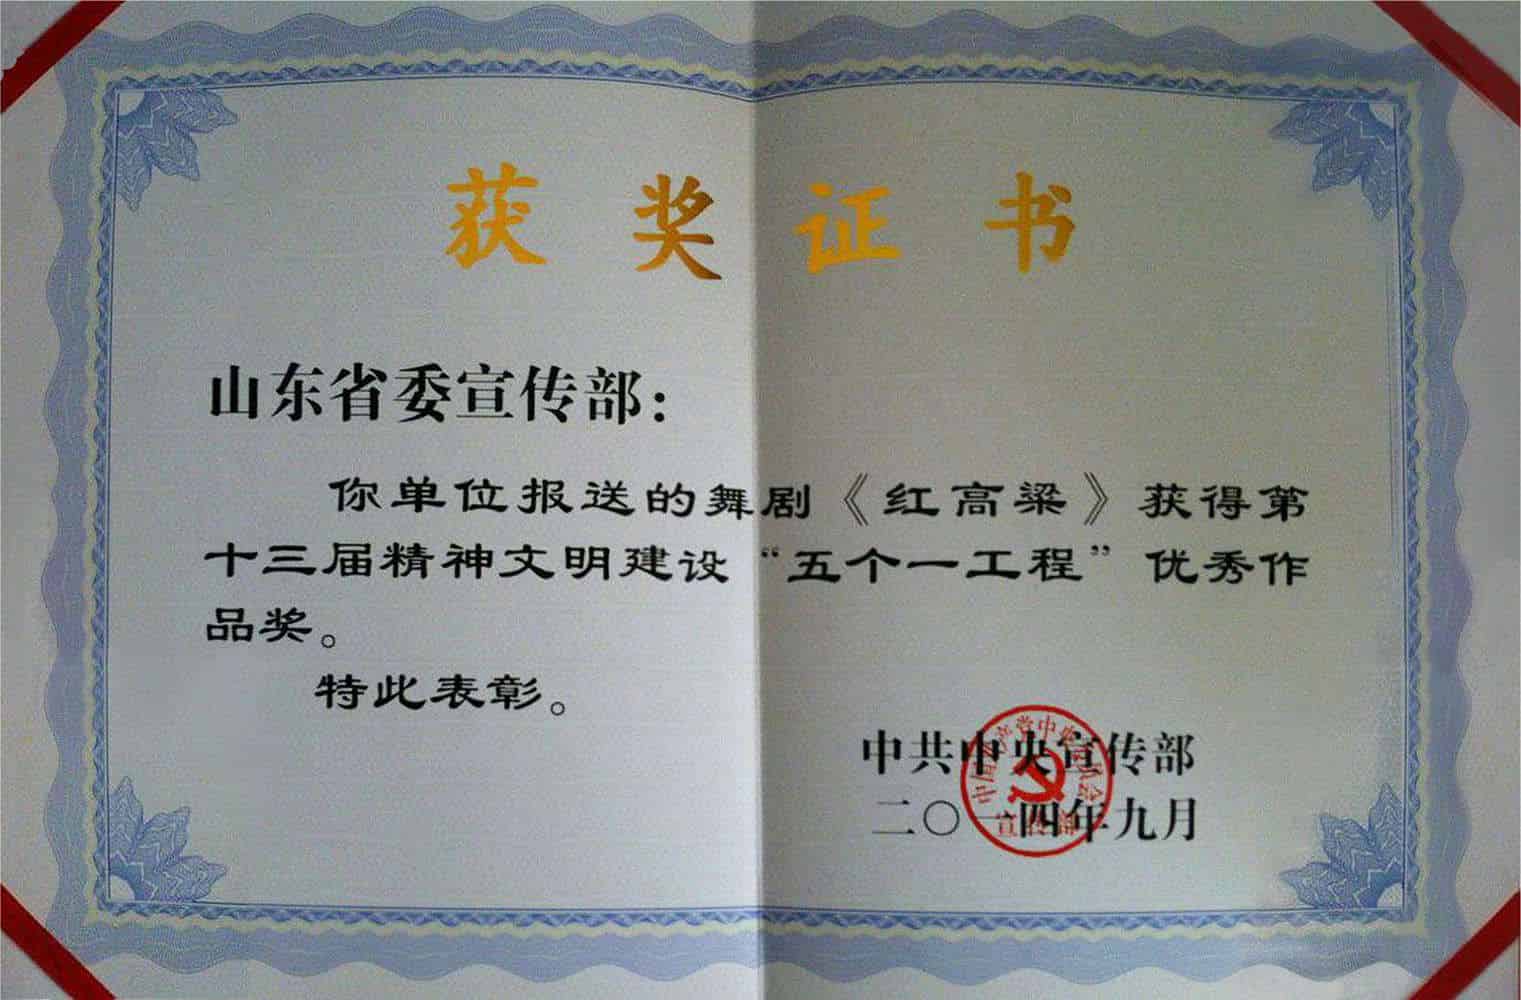 获奖证书
山东省委宣传部：
你单位报送的舞剧《红高粱》获得第
十三届精神文明建设“五个一工程”优秀作
品奖。
特此表彰。
中共中央宣传部
二〇一四年九月
中国共产党中央委员会
宣传部